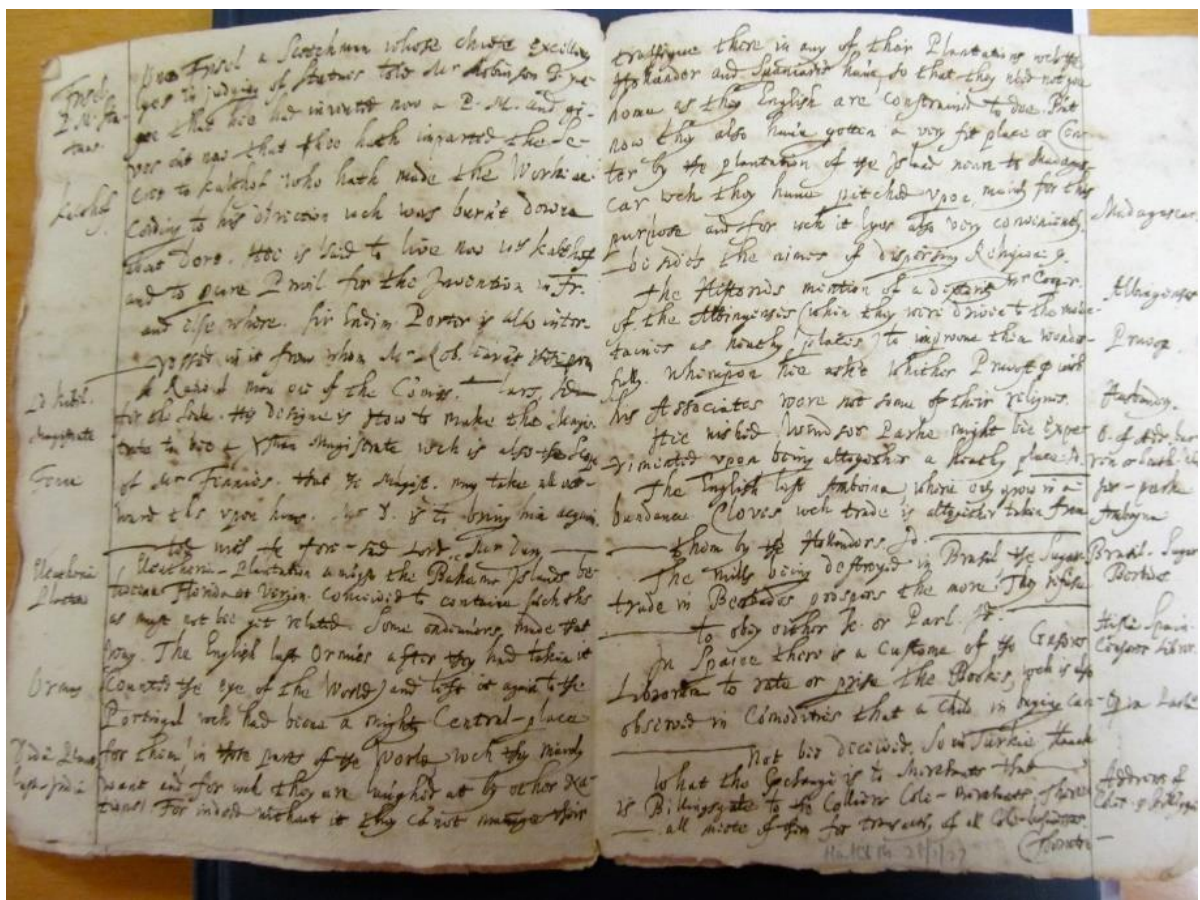 Fresel.
P. M. Sta-
tues.
Kalthof.
Ld Kebil.
Magistrate
Eleutheria
Plantat
Ormus
One Fresel a Scotchman whose chiefe excellency
lyes in judging of Statues told Mr Robinson &
that hee had invented now a P. M. and gi-
ves out now that hee hath imparted the Se-
cret to Kalthof who hath made the Worke ac-
cording to his direction wch was burn't downe
that Dore. Hee is said to live now wth Kalthof
and to Privil. for the Invention in Fr.
and else where. Sir Endim. Porter is also inter-
ressed in it from whom Mr Rob.
a Rational man one of the Comiss.
for the Seale. His designe is How to make the Magi-
strate to bee a Xstian Magistrate wch is also the Scope
of Mr Finnies. That ye Magist. may take all
upon him. Mr D. is to bring him again
wth the fore-said Lord. Mr Dury
Eleutheria-Plantation amongst the Bahama Islands be-
tweene Florida et Virgin. conceived to containe such ths
as must not bee yet related. Some ordinners made that
song. The English lost Ormus after they had taken it
(counted the eye of the World) and lost it again to the
Portugal wch had beene a mighty Central-place
for them in those parts of the World wch they mainly
want and for wch they are laughed at by other Na-
tions. For indeed without it they cānot manage their
traffique there in any of their Plantations wch the
Hollander and Spaniards have, so that they need not goe
home as the English are constrained to doe. But
now they also have gotten a very fit place or Cen-
ter by the plantation of the Island neere to Madagas-
car wch they have pitched upon mainly for this
purpose and for wch it lyes also very conveniently.
besides the aimes of dispersing Religion &.
The Histories mention of a Mr Cooper.
of the Albingenses (when they were driven to the moūn-
taines as heathy places) to improove them wonder-
fully. Whereupon hee ask't whether Pruvost with
his Associates were not some of their religius.
Hee wished Windsor Parke might bee expe-
rimented upon being altogether a heathy place. Id.
The English lost Amboina where only grow in a-
bundance Cloves wch trade is altogether taken from
them by the Hollanders. Id.
The mills being destroyed in Brasil the Sugar
trade in Berbados prospers the more. They refuse
to obey either K. or Parl. Id.
In Spaine there is a Custome of the Censores
Librorum to rate or prise the Bookes, wch is also
observed in Cōmodities that a Child in buying can-
not bee deceived. So in Turkie
What the Exchange is to Merchants that
is Billingsgate to the Colliers Cole-Merchants,
all meete for of all Cole-businesses
Madagascar
Albingenses
Pruvost
Husbandry.
Amboyna
Brasil. Sugar
Berbados
Hisp. Spain.
Censores Libror.
Address of
Hartlib 28/1/27